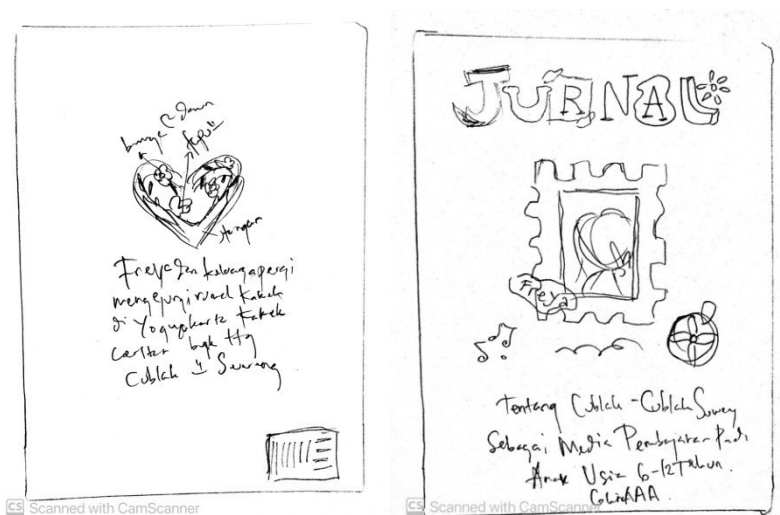 bunga & daun
Freya dan keluarga pergi
mengunjungi rumah kakek
di Yogyakarta kakek
cerita byk ttg
Cublak " Suweng
CS Scanned with CamScanner
JURNAL
Freya
Tentang Cublak-Cublak Suweng
Sebagai Media Pembelajaran Pada
Anak Usia 6-12 Tahun.
CS Scanned with CamScanner